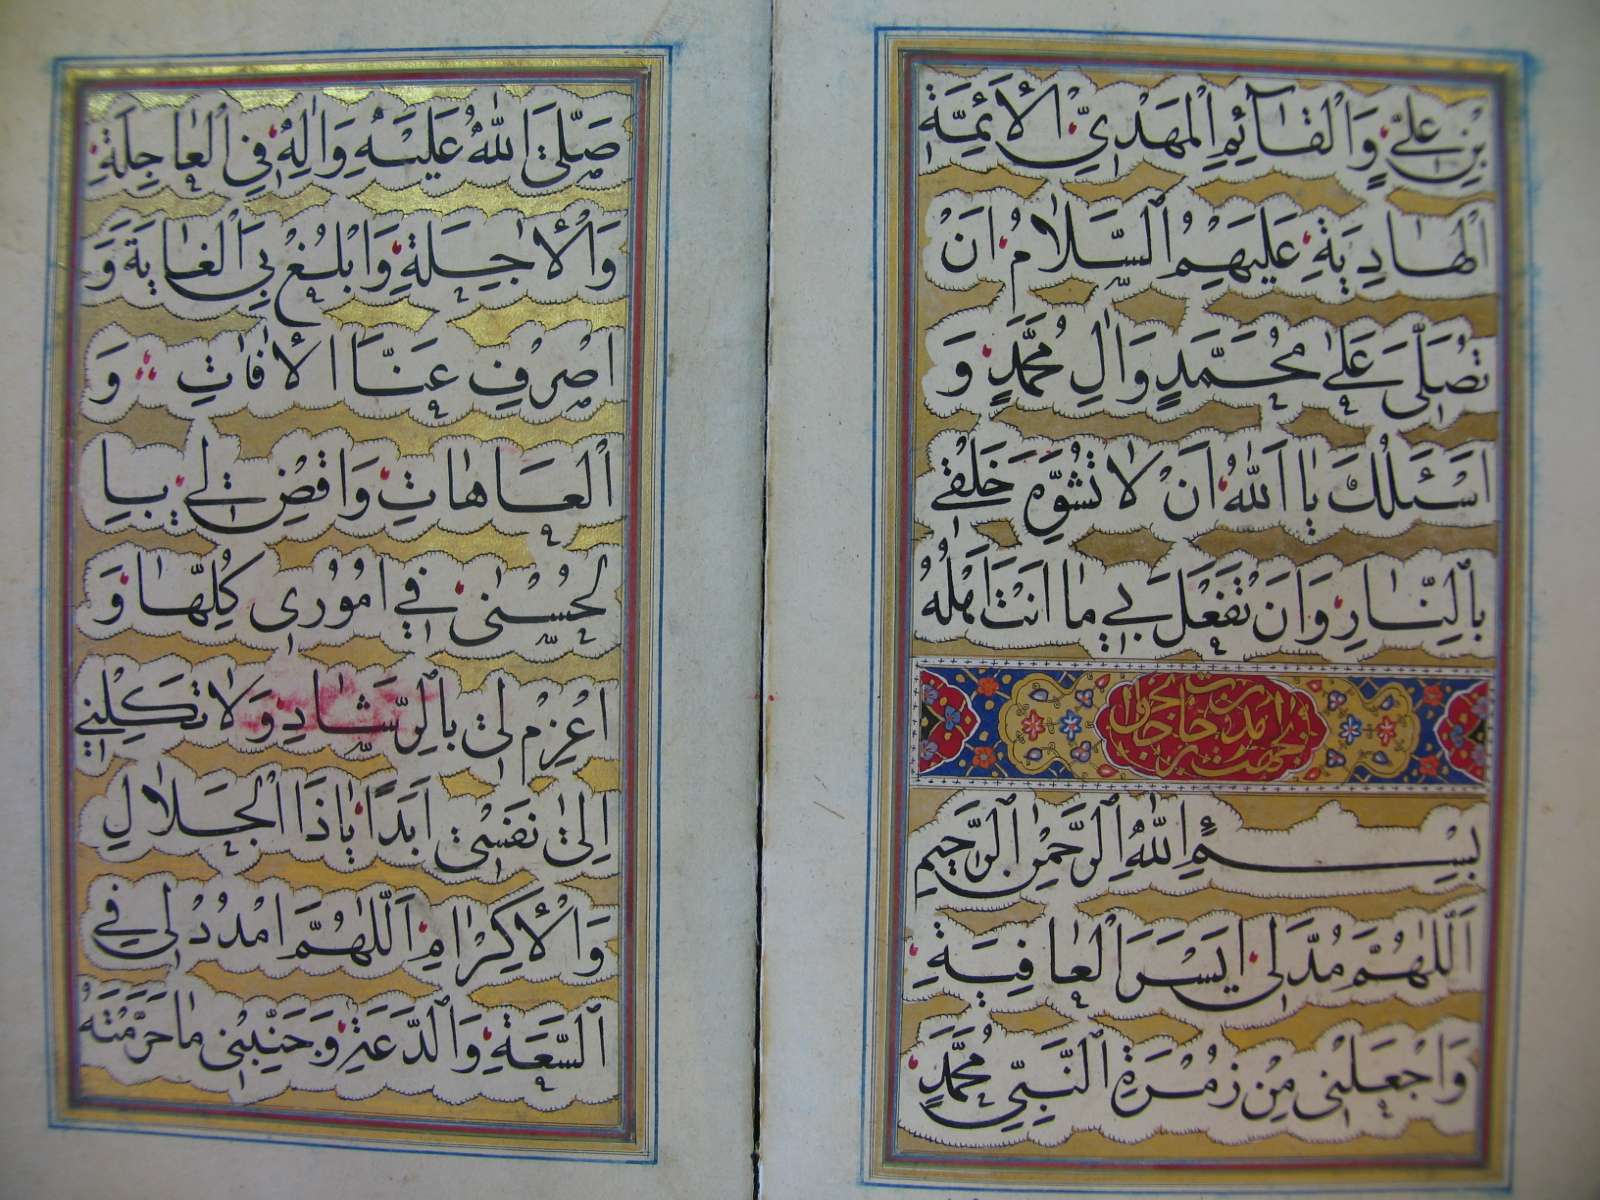 بْنِ عَلِيٍّ وَالْقَآئِمِ الْمَهْدِيِّ الْأَئِمَّةِ
الْهَادِيَةِ عَلَيْهِمُ السَّلَامُ اَنْ
تُصَلِّىَ عَلَىٰ مُحَمَّدٍ وَالِ مُحَمَّدٍ وَ
اَسْئَلُكَ يَا اَللّٰهُ اَنْ لَا تُشَوِّهَ خَلْقِي
بِالنَّارِ وَاَنْ تَفْعَلَ بِي مَا اَنْتَ اَهْلُهُ
بجهت
بِسْمِ اللّٰهِ الرَّحْمٰنِ الرَّحِيمِ
اَللّٰهُمَّ مُدَّ لِي اَيْسَرَ الْعَافِيَةِ
وَاجْعَلْنِي مِنْ زُمْرَةِ النَّبِيِّ مُحَمَّدٍ
صَلَّى اللّٰهُ عَلَيْهِ وَالِهِ فِي الْعَاجِلَةِ
وَالْاٰجِلَةِ وَابْلُغْ بِيَ الْغَايَةَ وَ
اصْرِفْ عَنَّا الْاٰفَاتِ وَ
الْعَاهَاتِ وَاقْضِ لِي بِا
لْحُسْنٰى فِي اُمُوُرِي كُلِّهَا وَ
اعْزِمْ لِي بِالرَّشَادِ وَلَا تَكِلْنِي
اِلىٰ نَفْسِي اَبَدًا يَا ذَا الْجَلَالِ
وَالْاِكْرَامِ اَللّٰهُمَّ امْدُدْ لِي فِي
السَّعَةِ وَالدَّعَةِ وَجَنِّبْنِي مَا حَرَّمْتَهُ